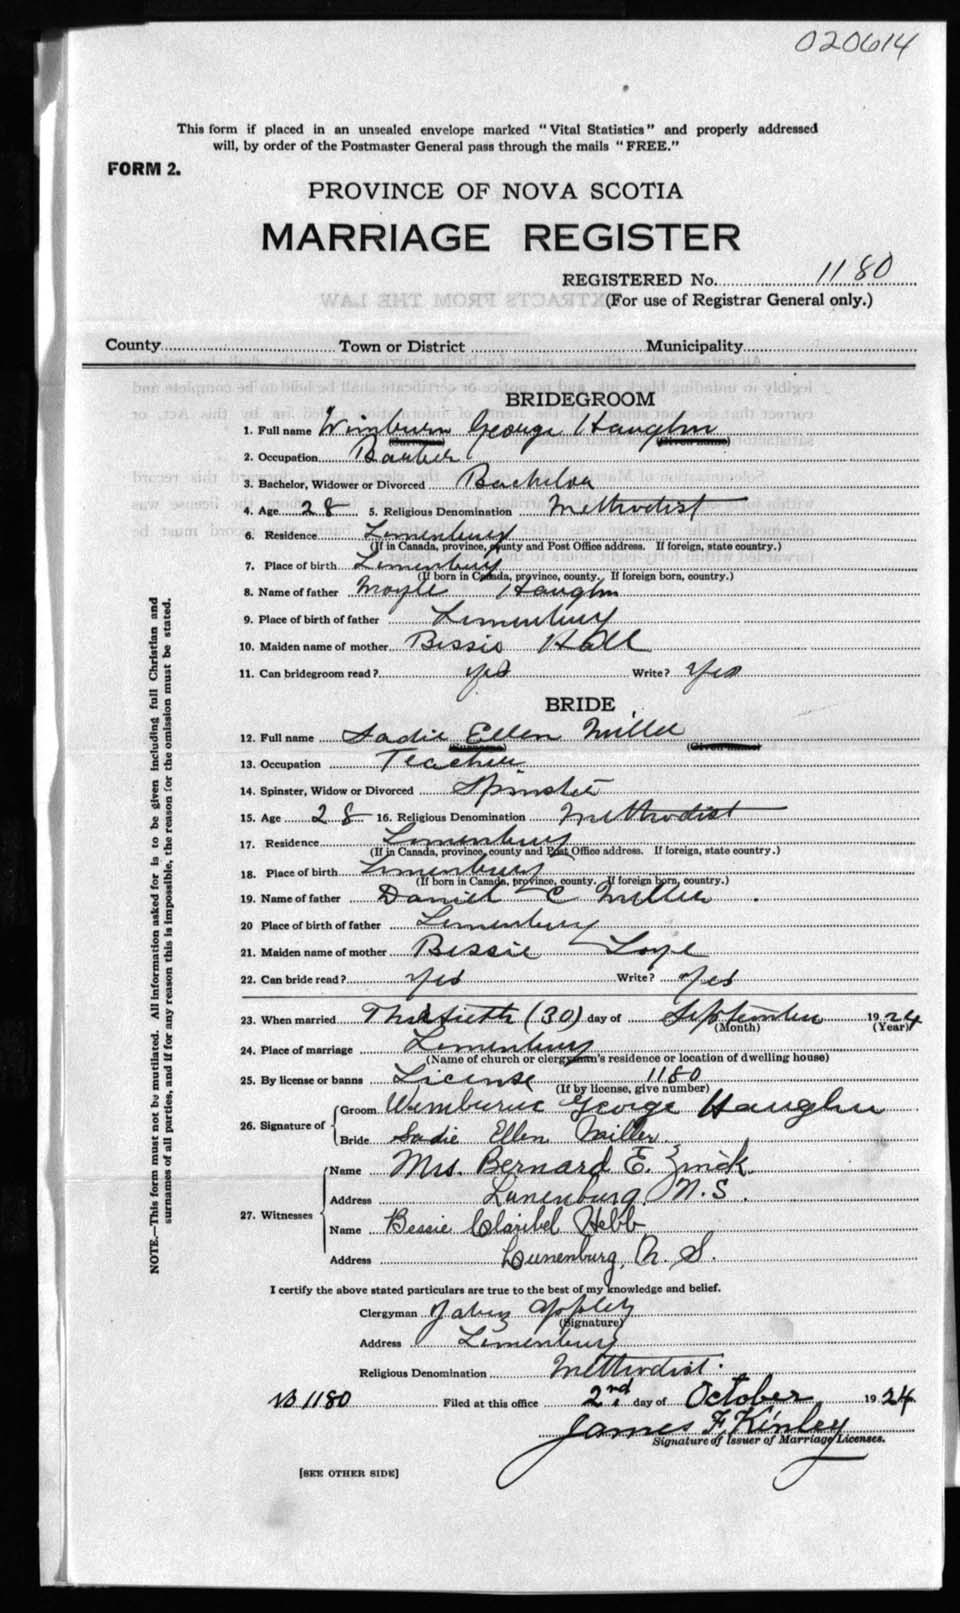 020614
This form if placed in an unsealed envelope marked "Vital Statistics" and properly addressed
will, by order of the Postmaster General pass through the mails "FREE."
FORM 2.
PROVINCE OF NOVA SCOTIA
MARRIAGE REGISTER
REGISTERED No. 1180
(For use of Registrar General only.)
County Town or District Municipality
BRIDEGROOM
1. Full name George Haughn
(Surname) (Given name)
2. Occupation Barber
3. Bachelor, Widower or Divorced Bachelor
4. Age 28 5. Religious Denomination Methodist
6. Residence Lunenburg
(If in Canada, province, county and Post Office address. If foreign, state country.)
7. Place of birth Lunenburg
(If born in Canada, province, county. If foreign born, country.)
8. Name of father Moyle Haughn
9. Place of birth of father Lunenburg
10. Maiden name of mother Bessie Hall
11. Can bridegroom read? yes Write? Yes
BRIDE
12. Full name Sadie Ellen Miller
(Surname) (Given name)
13. Occupation Teacher
14. Spinster, Widow or Divorced Spinster
15. Age 28 16. Religious Denomination Methodist
17. Residence Lunenburg
(If in Canada, province, county and Post Office address. If foreign, state country.)
18. Place of birth Lunenburg
(If born in Canada, province, county. If foreign born, country.)
19. Name of father Daniel C Miller
20 Place of birth of father Lunenburg
21. Maiden name of mother Bessie
22. Can bride read? yes Write? Yes
23. When married (30) day of September 1924
(Month) (Year)
24. Place of marriage Lunenburg
(Name of church or clergyman's residence or location of dwelling house)
25. By license or banns License 1180
(If by license, give number)
26. Signature of Groom George Haughn
Bride Sadie Ellen Miller
27. Witnesses Name Mrs. Bernard E. Zinck
Address Lunenburg N.S.
Name Bessie Claribel Hebb
Address Lunenburg, N. S.
I certify the above stated particulars are true to the best of my knowledge and belief.
Clergyman
(Signature)
Address Lunenburg
Religious Denomination Methodist.
No 1180 Filed at this office 2nd day of October 1924
James F. Kinley
Signature of Issuer of Marriage Licenses.
[SEE OTHER SIDE]
NOTE.—This form must not be mutilated. All information asked for is to be given including full Christian and
surnames of all parties, and if for any reason this is impossible, the reason for the omission must be stated.